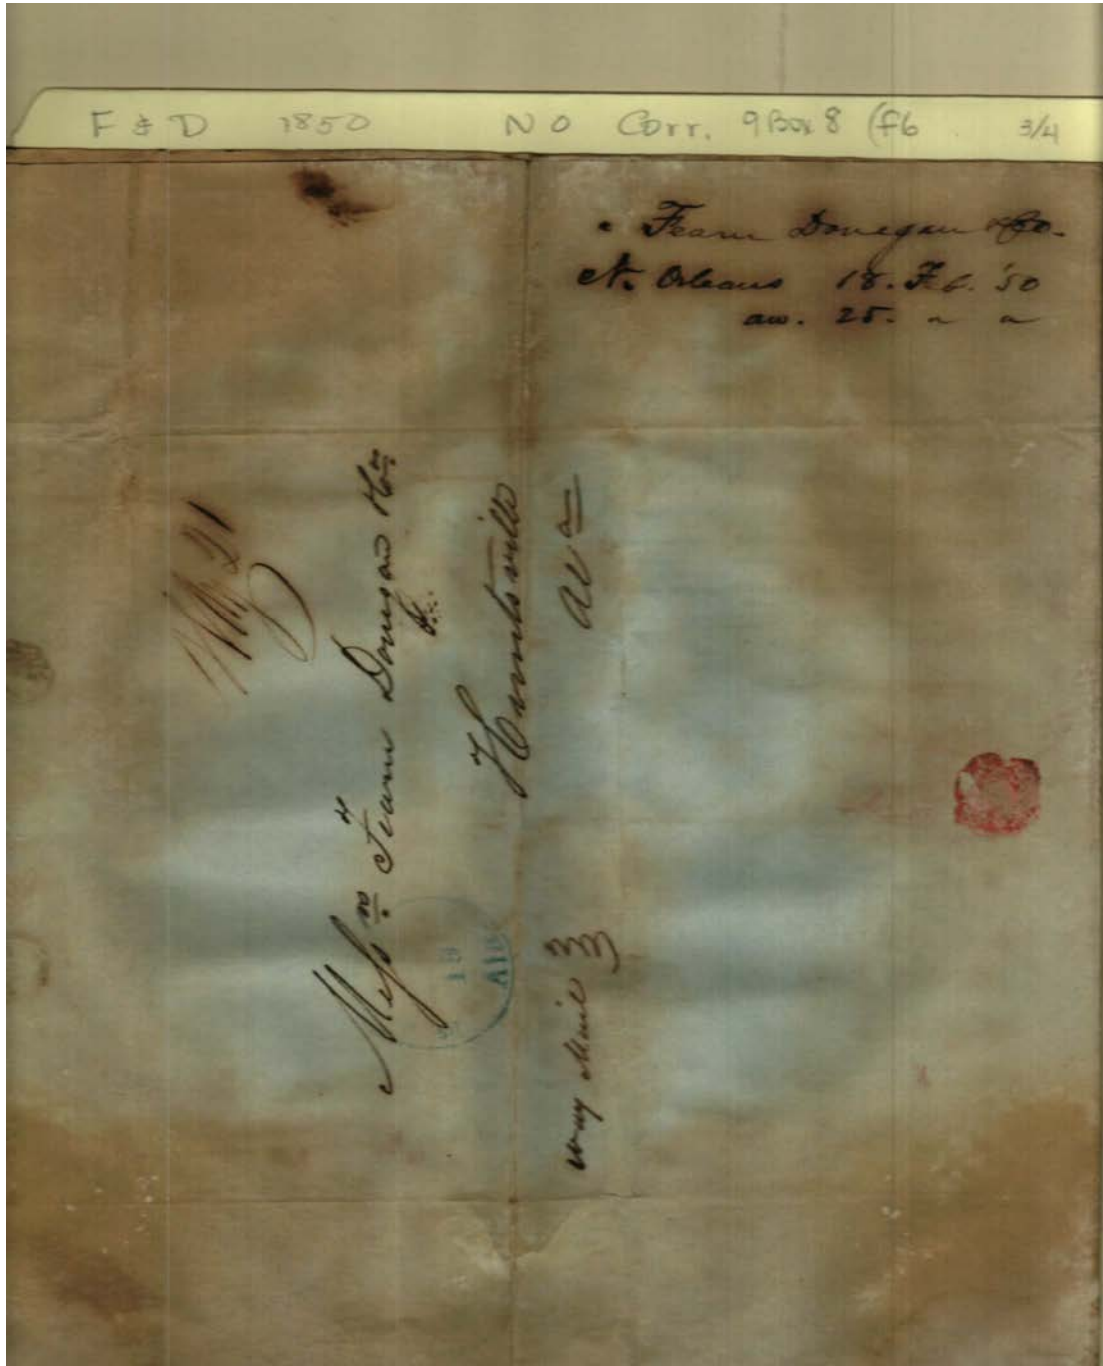 F & D 1850 NO Corr. 9 Box 8 (f6 3/4
Fearn Donegan & Co.
N. Orleans 18. Feb. '50
25.
Mess rs Fearn Donegan & Co
Huntsville
Al a
way Mail 33
18